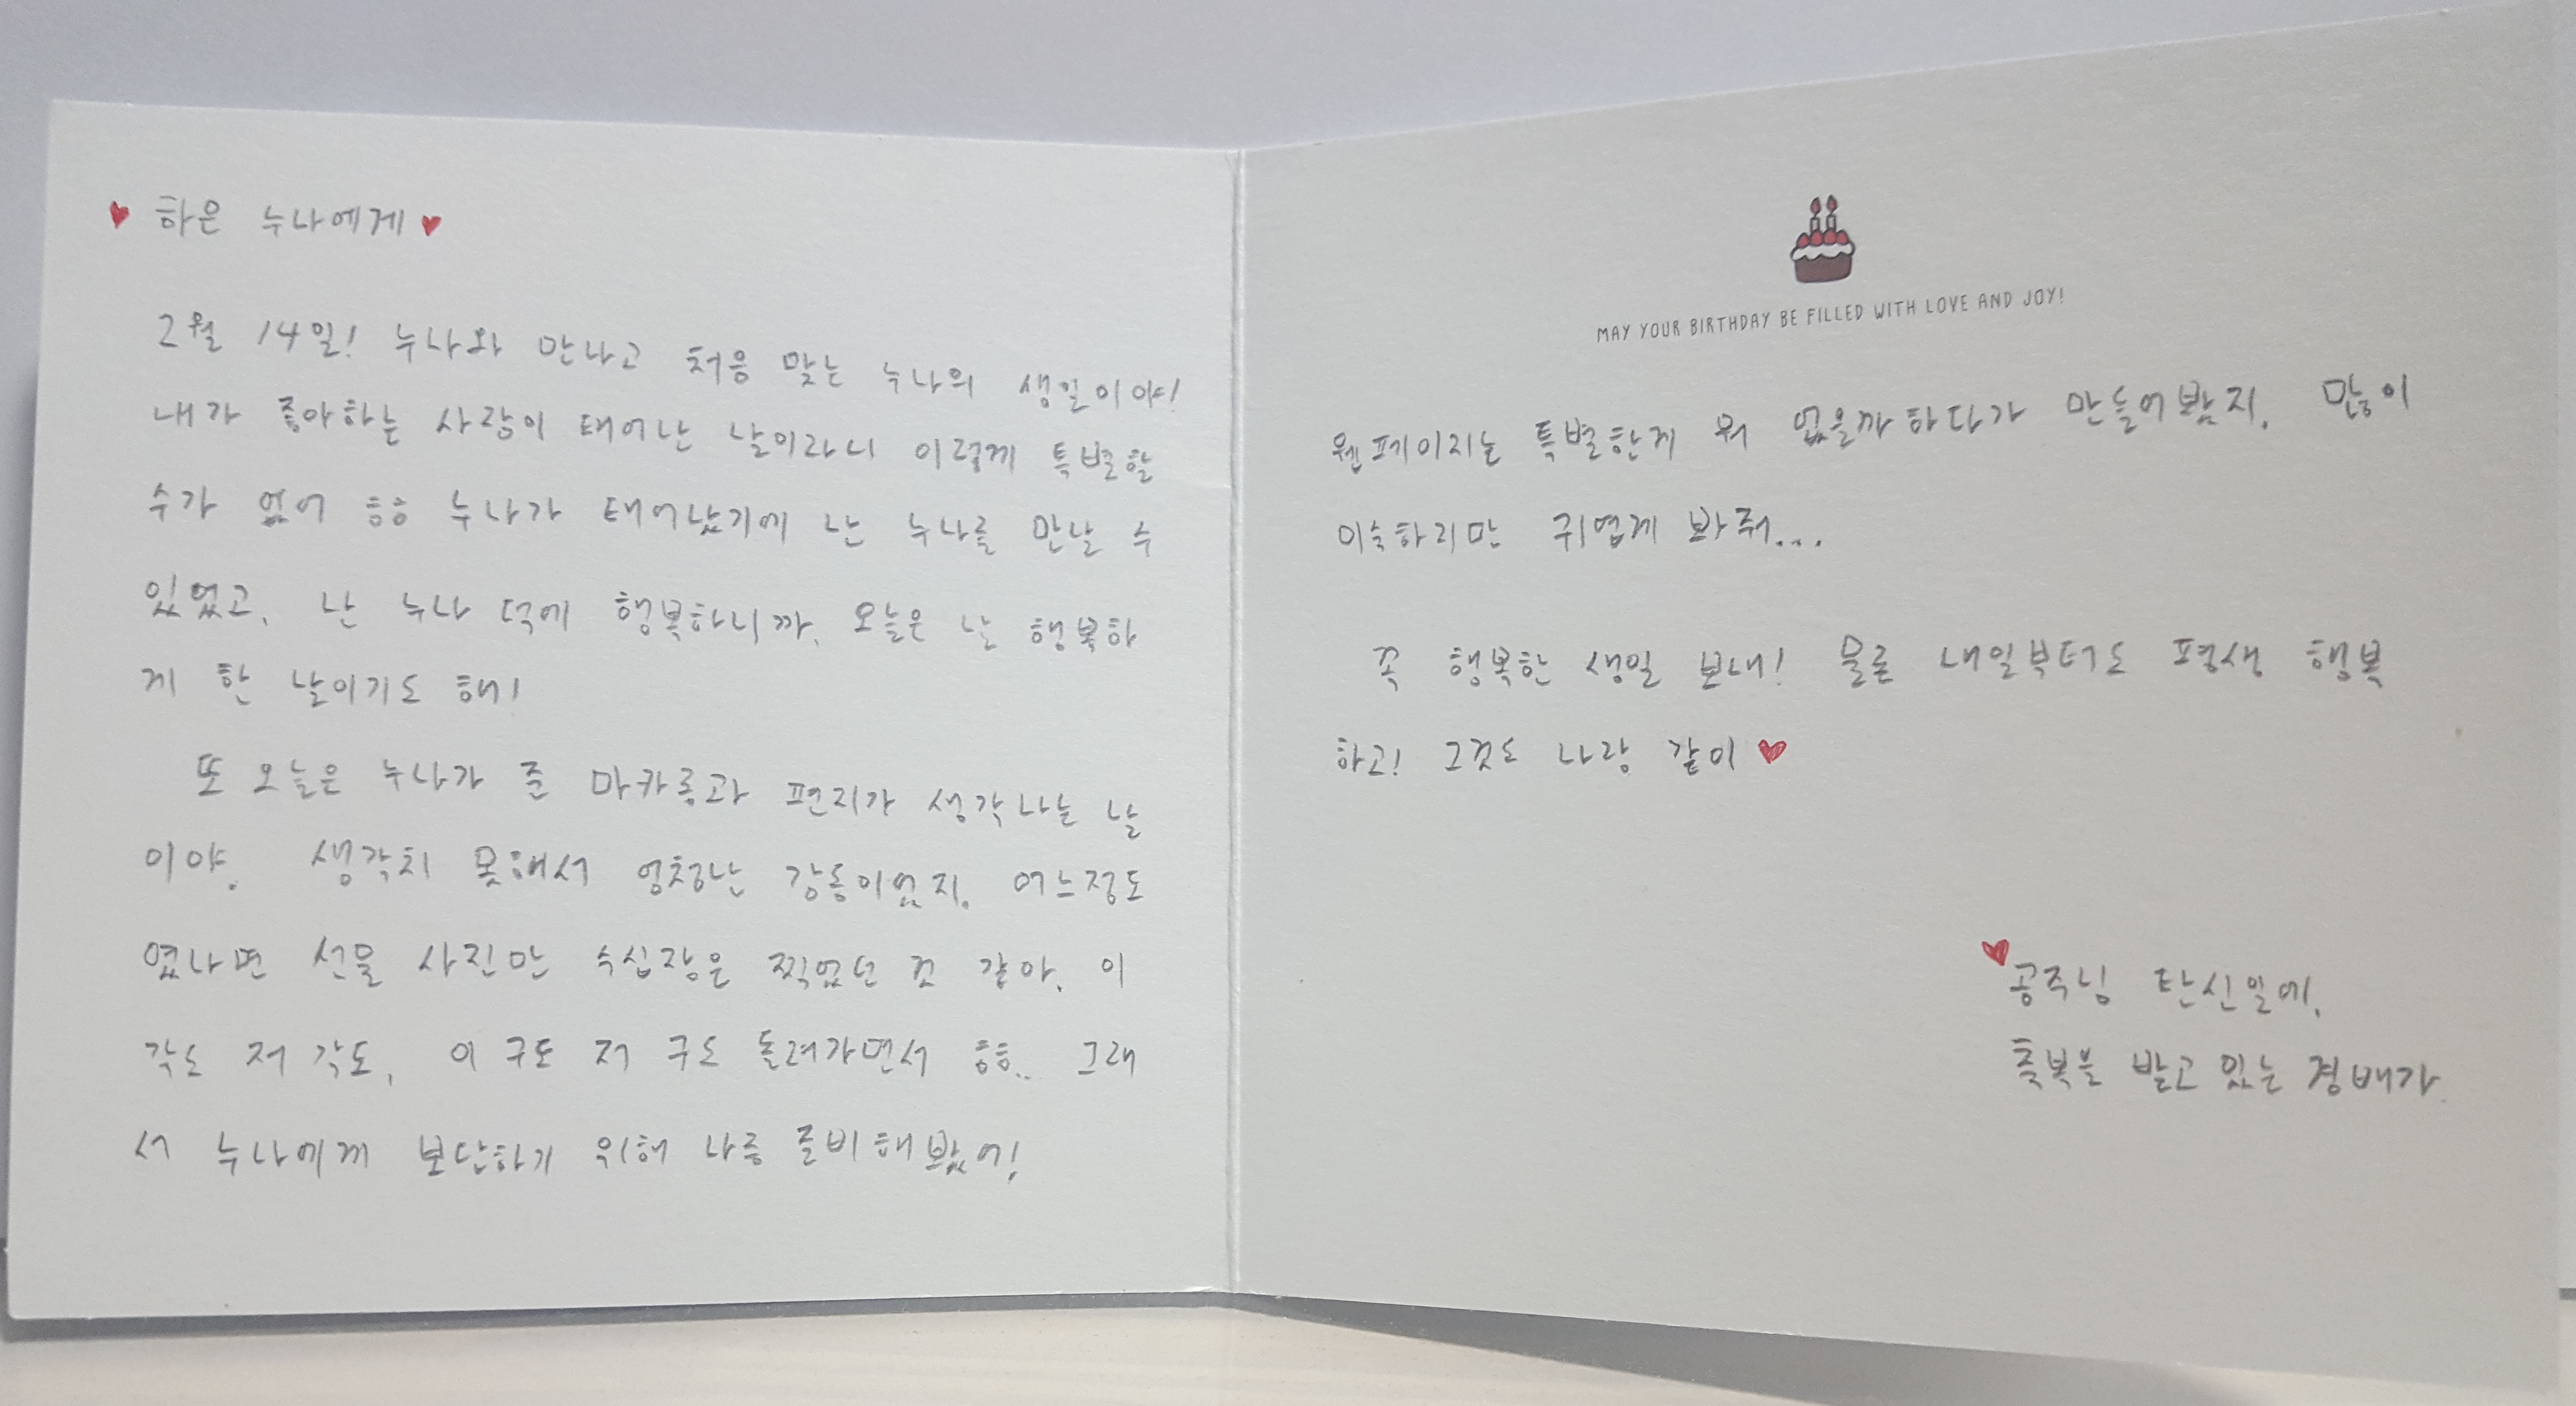 ♥ 하은 누나에게 ♥
2월 14일! 누나와 만나고 처음 맞는 누나의 생일이야!
내가 좋아하는 사람이 태어난 날이라니 이렇게 특별할
수가 없어 ㅎㅎ 누나가 태어났기에 난 누나를 만날 수
있었고, 난 누나 덕에 행복하니까. 오늘은 날 행복하
게 한 날이기도 해!
또 오늘은 누나가 준 마카롱과 편지가 생각나는 날
이야. 생각치 못해서 엄청난 감동이었지. 어느정도
였냐면 선물 사진만 수십장은 찍었던 것 같아. 이
각도 저 각도, 이 구도 저 구도 돌려가면서 ㅎㅎ.. 그래
서 누나에게 보답하기 위해 나름 준비해봤어!
MAY YOUR BIRTHDAY BE FILLED WITH LOVE AND JOY!
웹페이지는 특별한게 뭐 없을까하다가 만들어봤지. 많이
미숙하지만 귀엽게 봐줘...
꼭 행복한 생일 보내! 물론 내일부터도 평생 행복
하고! 그것도 나랑 같이 ♥
♥공주님 탄신일에,
축복을 받고 있는 경배가